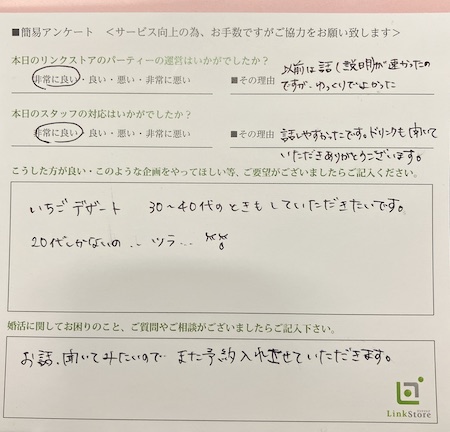 ■簡易アンケート ＜サービス向上の為、お手数ですがご協力をお願い致します＞
本日のリンクストアのパーティーの運営はいかがでしたか？
非常に良い・良い・悪い・非常に悪い
■その理由
以前は話し(説明)が速かったの
ですが、ゆっくりでよかった
本日のスタッフの対応はいかがでしたか？
非常に良い・良い・悪い・非常に悪い
■その理由
話しやすかったです。ドリンクも聞いて
いただきありがとうございます。
こうした方が良い・このような企画をやってほしい等、ご要望がございましたらご記入ください。
いちごデザート 30～40代のときもしていただきたいです。
20代しかないの... ツラ...
婚活に関してお困りのこと、ご質問やご相談がございましたらご記入下さい。
お話、聞いてみたいので また予約入れさせていただきます。
LinkStore